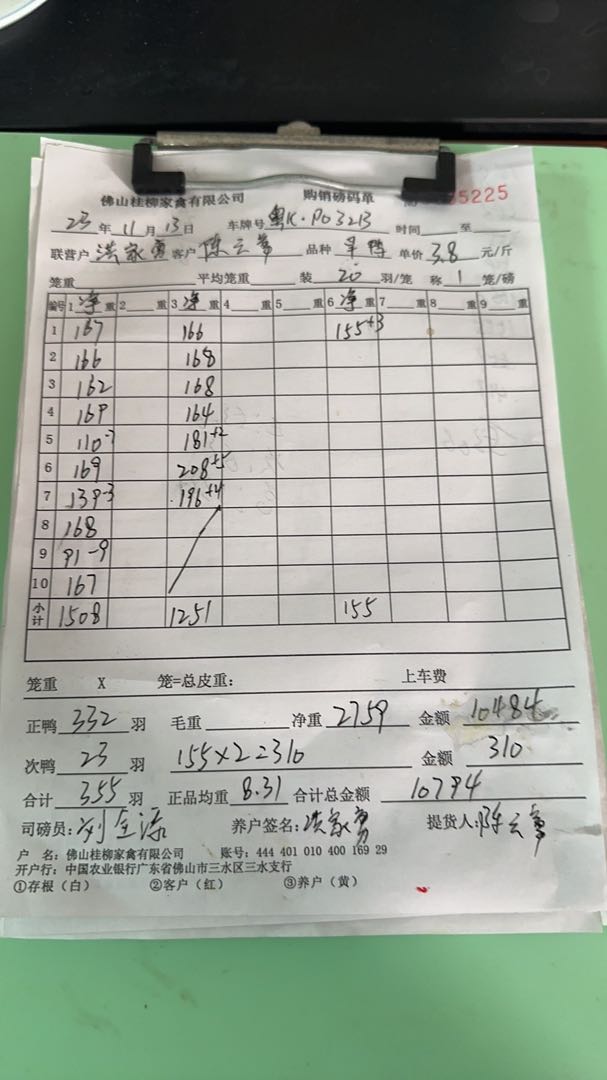 佛山桂柳家禽有限公司 购销磅码单 5225
23年11月13日 车牌号粤K·P03213 时间 至
联营户洪家勇客户陈云 品种旱鸭 单价3.8元/斤
笼重 平均笼重 装20羽/笼 称1笼/磅
编号 1净重 2重 3净重 4重 5重 6净重 7重 8重 9重
1 167 166 155+3
2 166 168
3 162 168
4 169 164
5 110-7 181+2
6 169 208+5
7 139-3 196+4
8 168
9 91-9
10 167
小计 1508 1251 155
笼重 X 笼=总皮重: 上车费
正鸭332羽 毛重 净重2759 金额10484
次鸭23羽 155×2=310 金额310
合计355羽 正品均重8.31 合计总金额10794
司磅员:刘 养户签名:洪家勇 提货人:陈云
户 名:佛山桂柳家禽有限公司 账号:444 401 010 400 169 29
开户行:中国农业银行广东省佛山市三水区三水支行
①存根(白) ②客户(红) ③养户(黄)